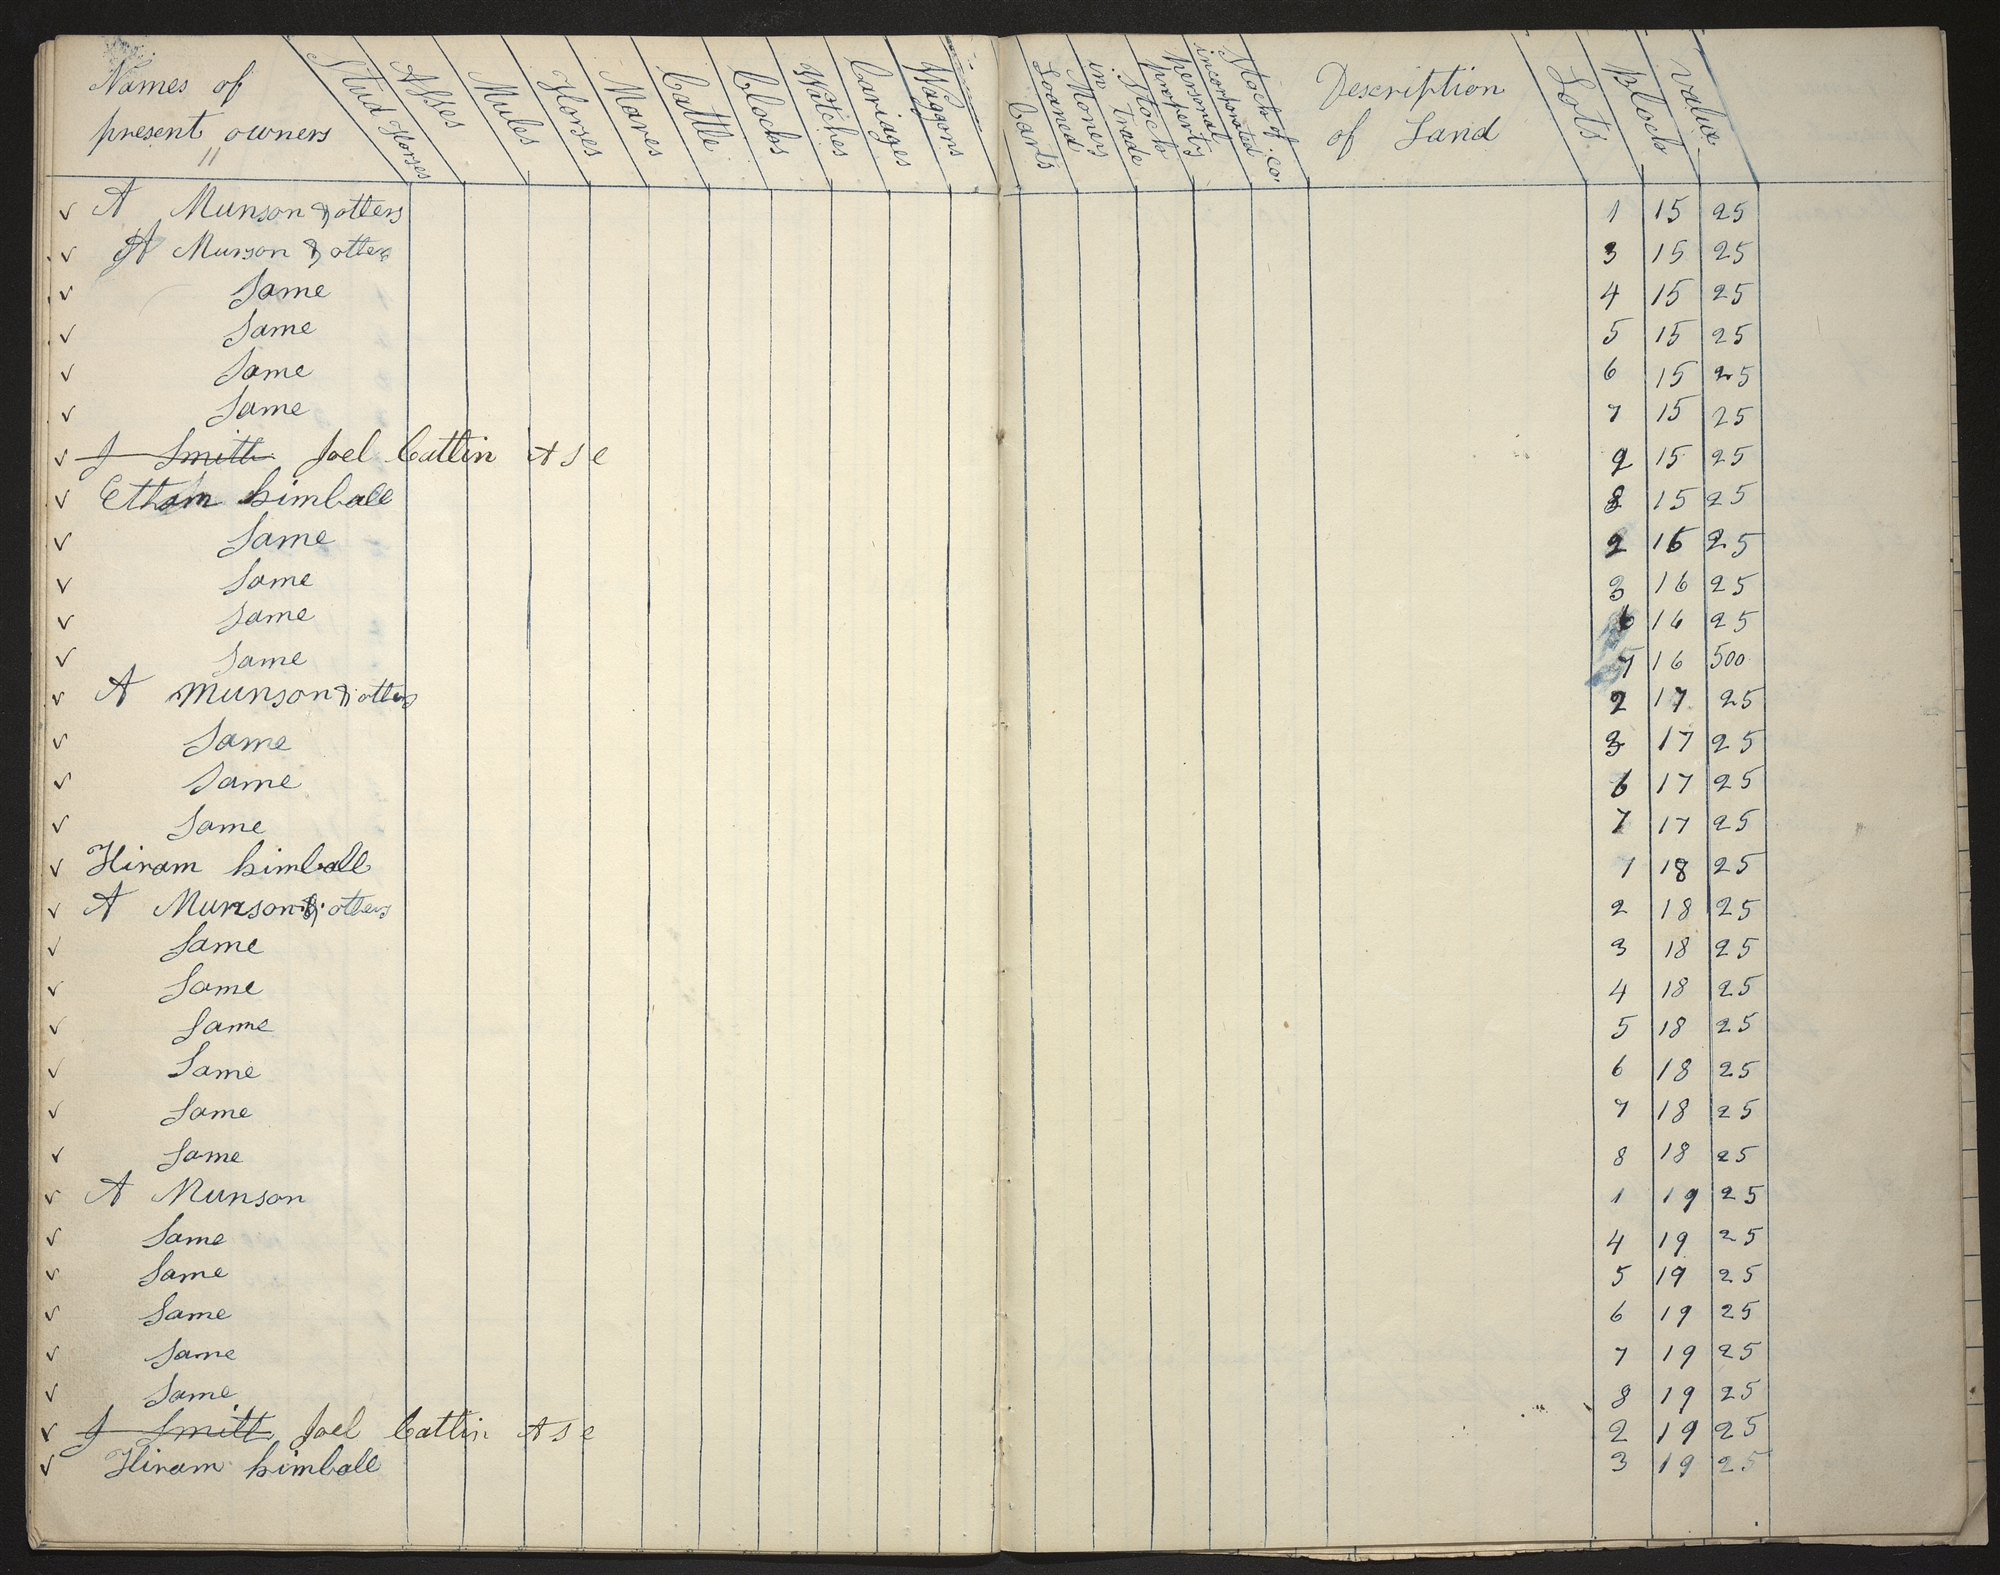 Names of present owners
Stud Horses
Asses
Mules
Horses
Mares
Cattle
Clocks
Watches
Cariages
Waggons
Carts
Moneys Loaned in
Stock trade
personal property
Stock of incorporated co.
Description of Land
Lots
Block
value
✓ A Munson & others 1 15 25
✓ A Munson & others 3 15 25
✓ Same 4 15 25
✓ Same 5 15 25
✓ Same 6 15 25
✓ Same 7 15 25
✓ J Smith Joel Catlin A S e 2 15 25
✓ Ethan kimball 8 15 25
✓ Same 2 16 25
✓ Same 3 16 25
✓ Same 6 16 25
✓ Same 7 16 500
✓ A Munson & others 2 17 25
✓ Same 3 17 25
✓ Same 6 17 25
✓ Same 7 17 25
✓ Hiram kimball 1 18 25
✓ A Munson & others 2 18 25
✓ Same 3 18 25
✓ Same 4 18 25
✓ Same 5 18 25
✓ Same 6 18 25
✓ Same 7 18 25
✓ Same 8 18 25
✓ A Munson 1 19 25
✓ Same 4 19 25
✓ Same 5 19 25
✓ Same 6 19 25
✓ Same 7 19 25
✓ Same 8 19 25
✓ J Smith Joel Catlin A S e 2 19 25
✓ Hiram kimball 3 19 25